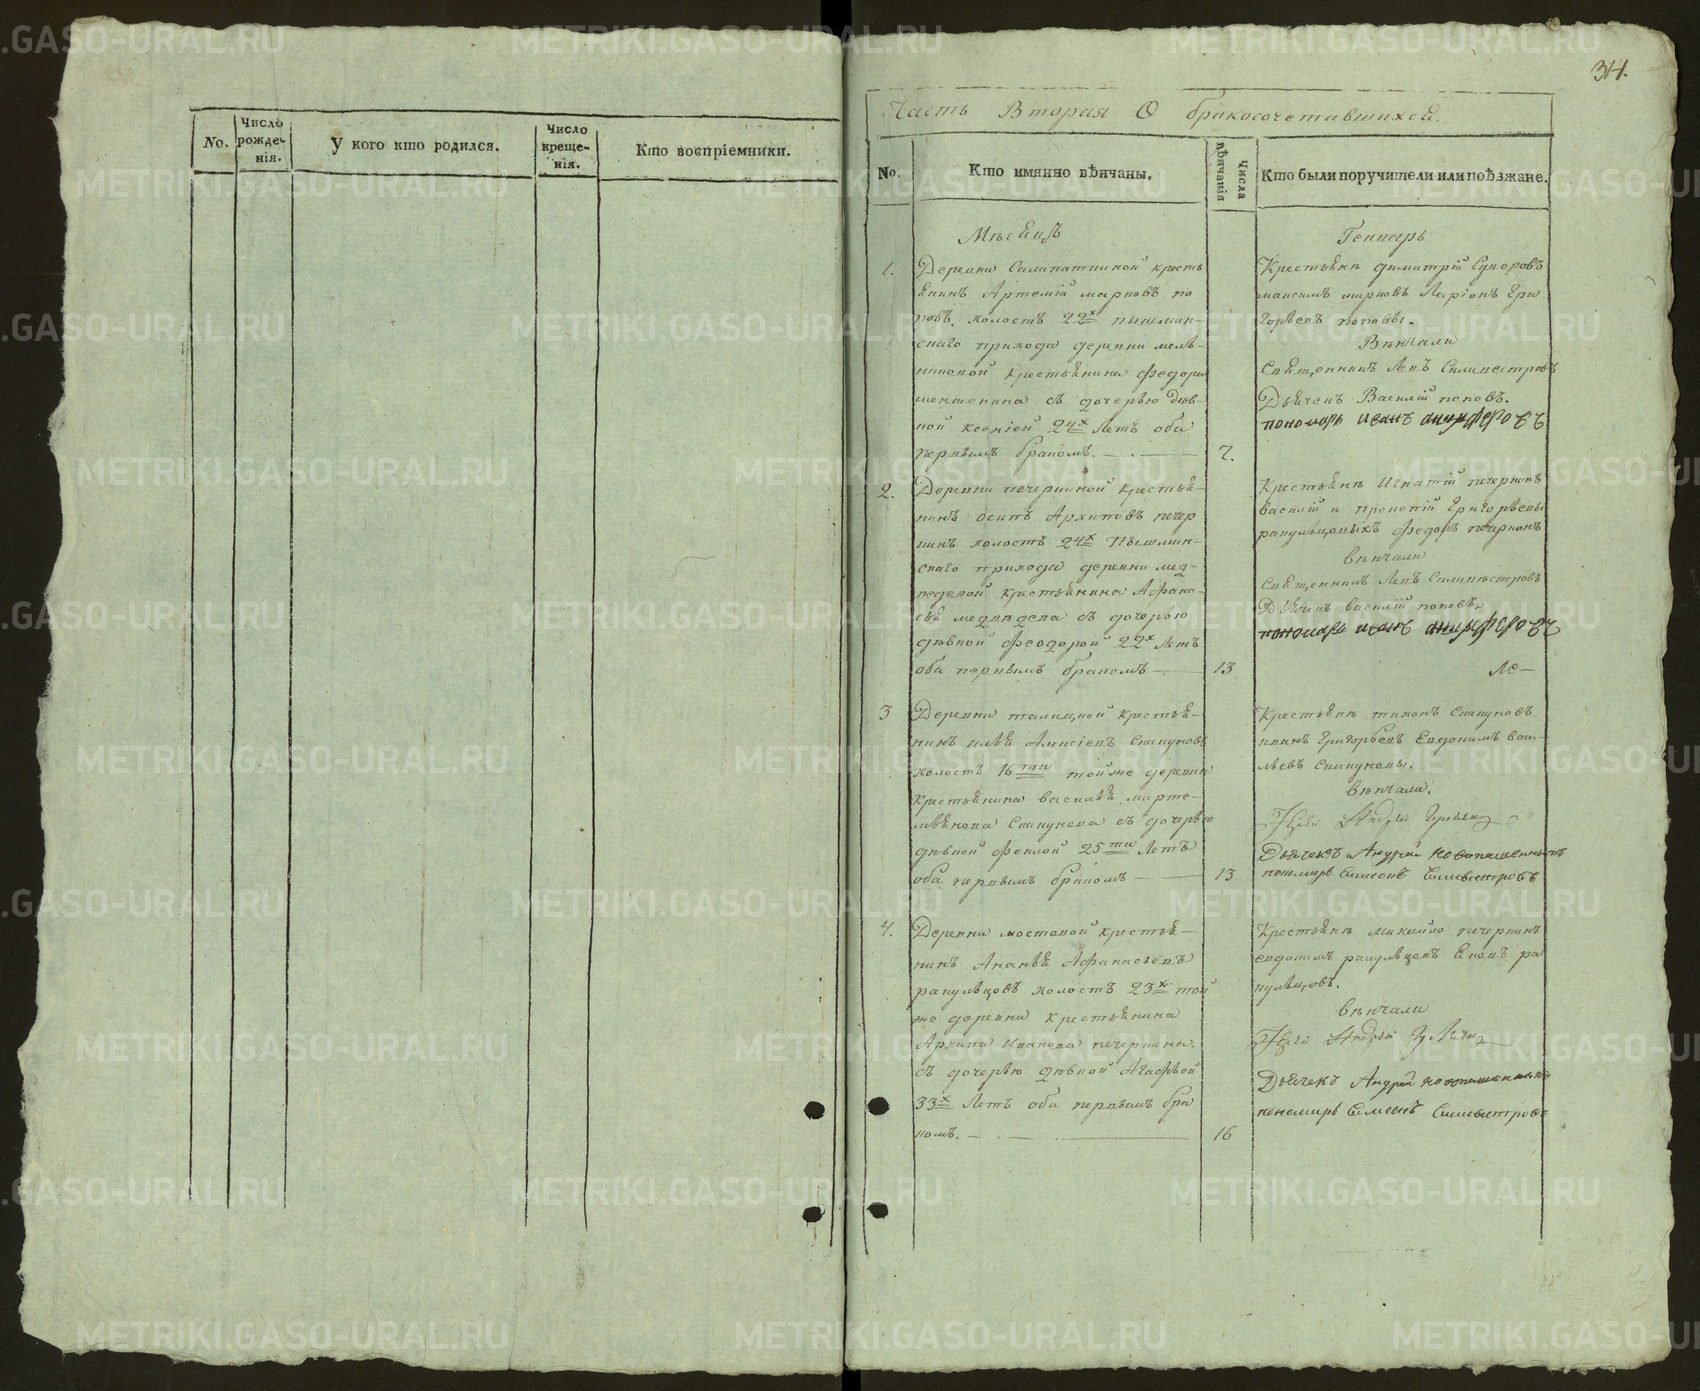 No.
Число рожде-нія.
У кого кто родился.
Число креще-нія.
Кто воспріемники.
314.
Часть Вторая О бракосочетавшихся.
No.
Кто имянно вѣнчаны.
Числа вѣнчанія
Кто были поручители или поѣзжане.
Мѣсяцъ
Генварь
1.
Деревни крестья
нинъ Артемій марковъ по
повъ, холостъ 22х пышмин-
скаго прихода деревни мель-
никовой крестьянина Федора
съ дочерью дѣв-
кой ксеніей 24х Летъ оба
первымъ бракомъ.
7.
Крестьяне димитрій Суворовъ
максимъ марковъ Ларіонъ Гри
горьевъ поповы.
Вѣнчали
Священникъ Левъ Силивестровъ
Дьячекъ Василій поповъ.
пономарь иванъ анцыферовъ
2.
Деревни печеркиной крестья-
нинъ осипъ Архиповъ печер
кинъ холостъ 24х Пышмин-
скаго прихода деревни мед-
ведевой крестьянина Афана-
сья медвѣдева съ дочерью
дѣвкой Феодорой 22х Летъ
оба первымъ бракомъ
13
Крестьяне Игнатій печеркинъ
василій и прокопій Григорьевы
ракульцовыхъ Федоръ печеркинъ
вѣнчали
Священникъ Левъ Силивестровъ
Дьячекъ василій поповъ.
пономарь иванъ анцыферовъ
Ле-
3
Деревни талицкой крестья-
нинъ илья Алексіевъ Спицуковъ
холостъ 16ти тойже деревни
крестьянина василья марте-
мьянова Спицукова съ дочерью
дѣвкой Феклой 25ти Летъ
оба первымъ бракомъ
13
Крестьяне тихонъ Спицуковъ
иванъ Григорьевъ Евдокимъ васи-
льевъ Спицуковы.
вѣнчали.
Андрей
Дьячекъ Андрей Новопашенныхъ
пономарь Симеонъ Силивестровъ
4.
Деревни мостовой крестья-
нинъ Ананья Афанасьевъ
ракульцовъ холостъ 23х той
же деревни крестьянина
Архипа Иванова печеркина
съ дочерью дѣвкой Агафьей
33х Летъ оба первымъ бра
комъ.
16
Крестьяне михайло печеркинъ
евдокимъ ракульцовъ Яковъ ра
кульцовъ.
вѣнчали
Андрей
Дьячекъ Андрей Новопашенныхъ
пономарь Симеонъ Силивестровъ